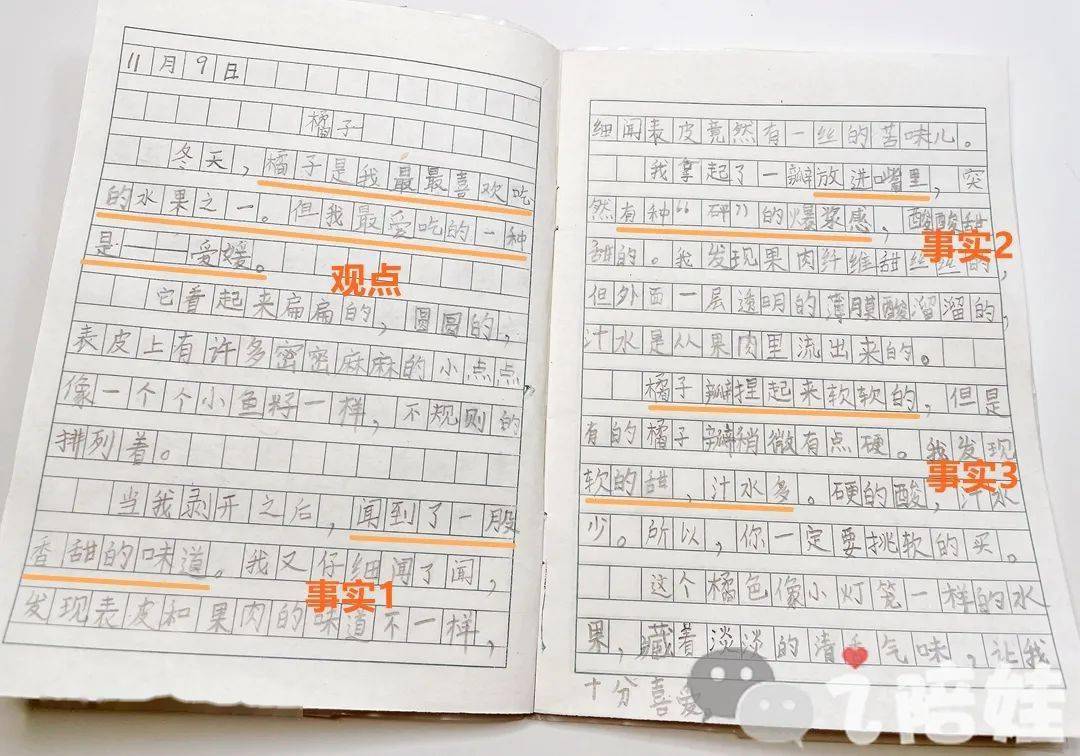 11月9日
橘子
冬天，橘子是我最最喜欢吃
的水果之一。但我最爱吃的一种
是——爱媛。
观点
它看起来扁扁的，圆圆的，
表皮上有许多密密麻麻的小点点，
像一个个小鱼籽一样，不规则的
排列着。
当我剥开之后，闻到了一股
香甜的味道。我又仔细闻了闻，
事实1
发现表皮和果肉的味道不一样，
细闻表皮竟然有一丝的苦味儿。
我拿起了一瓣放进嘴里，突
然有种“砰”的爆浆感，酸酸甜
事实2
甜的。我发现果肉纤维甜丝丝的，
但外面一层透明的薄膜酸溜溜的，
汁水是从果肉里流出来的。
橘子瓣捏起来软软的，但是
有的橘子瓣稍微有点硬。我发现
事实3
软的甜，汁水多。硬的酸，汁水
少。所以，你一定要挑软的买。
这个橘色像小灯笼一样的水
果，藏着淡淡的清香气味，让我
十分喜爱
陪娃